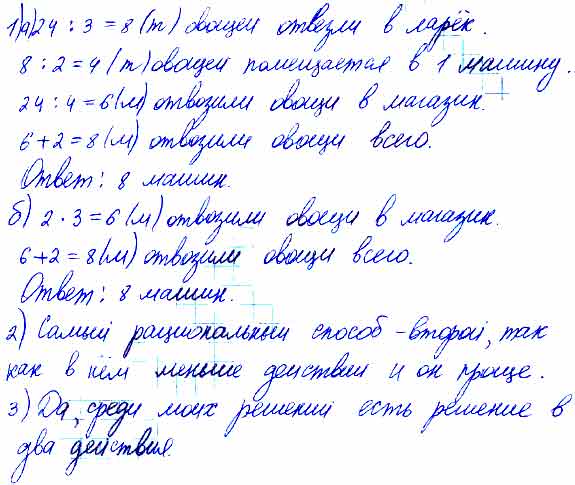 1)а)24 : 3 = 8 (т) овощей отвезли в ларёк.
8 : 2 = 4 (т) овощей помещается в 1 машину.
24 : 4 = 6 (м) отвозили овощи в магазин.
6 + 2 = 8 (м) отвозили овощи всего.
Ответ: 8 машин.
б) 2 · 3 = 6 (м) отвозили овощи в магазин.
6 + 2 = 8 (м) отвозили овощи всего.
Ответ: 8 машин.
2) Самый рациональный способ - второй, так
как в нём меньше действий и он проще.
3) Да, среди моих решений есть решение в
два действия.